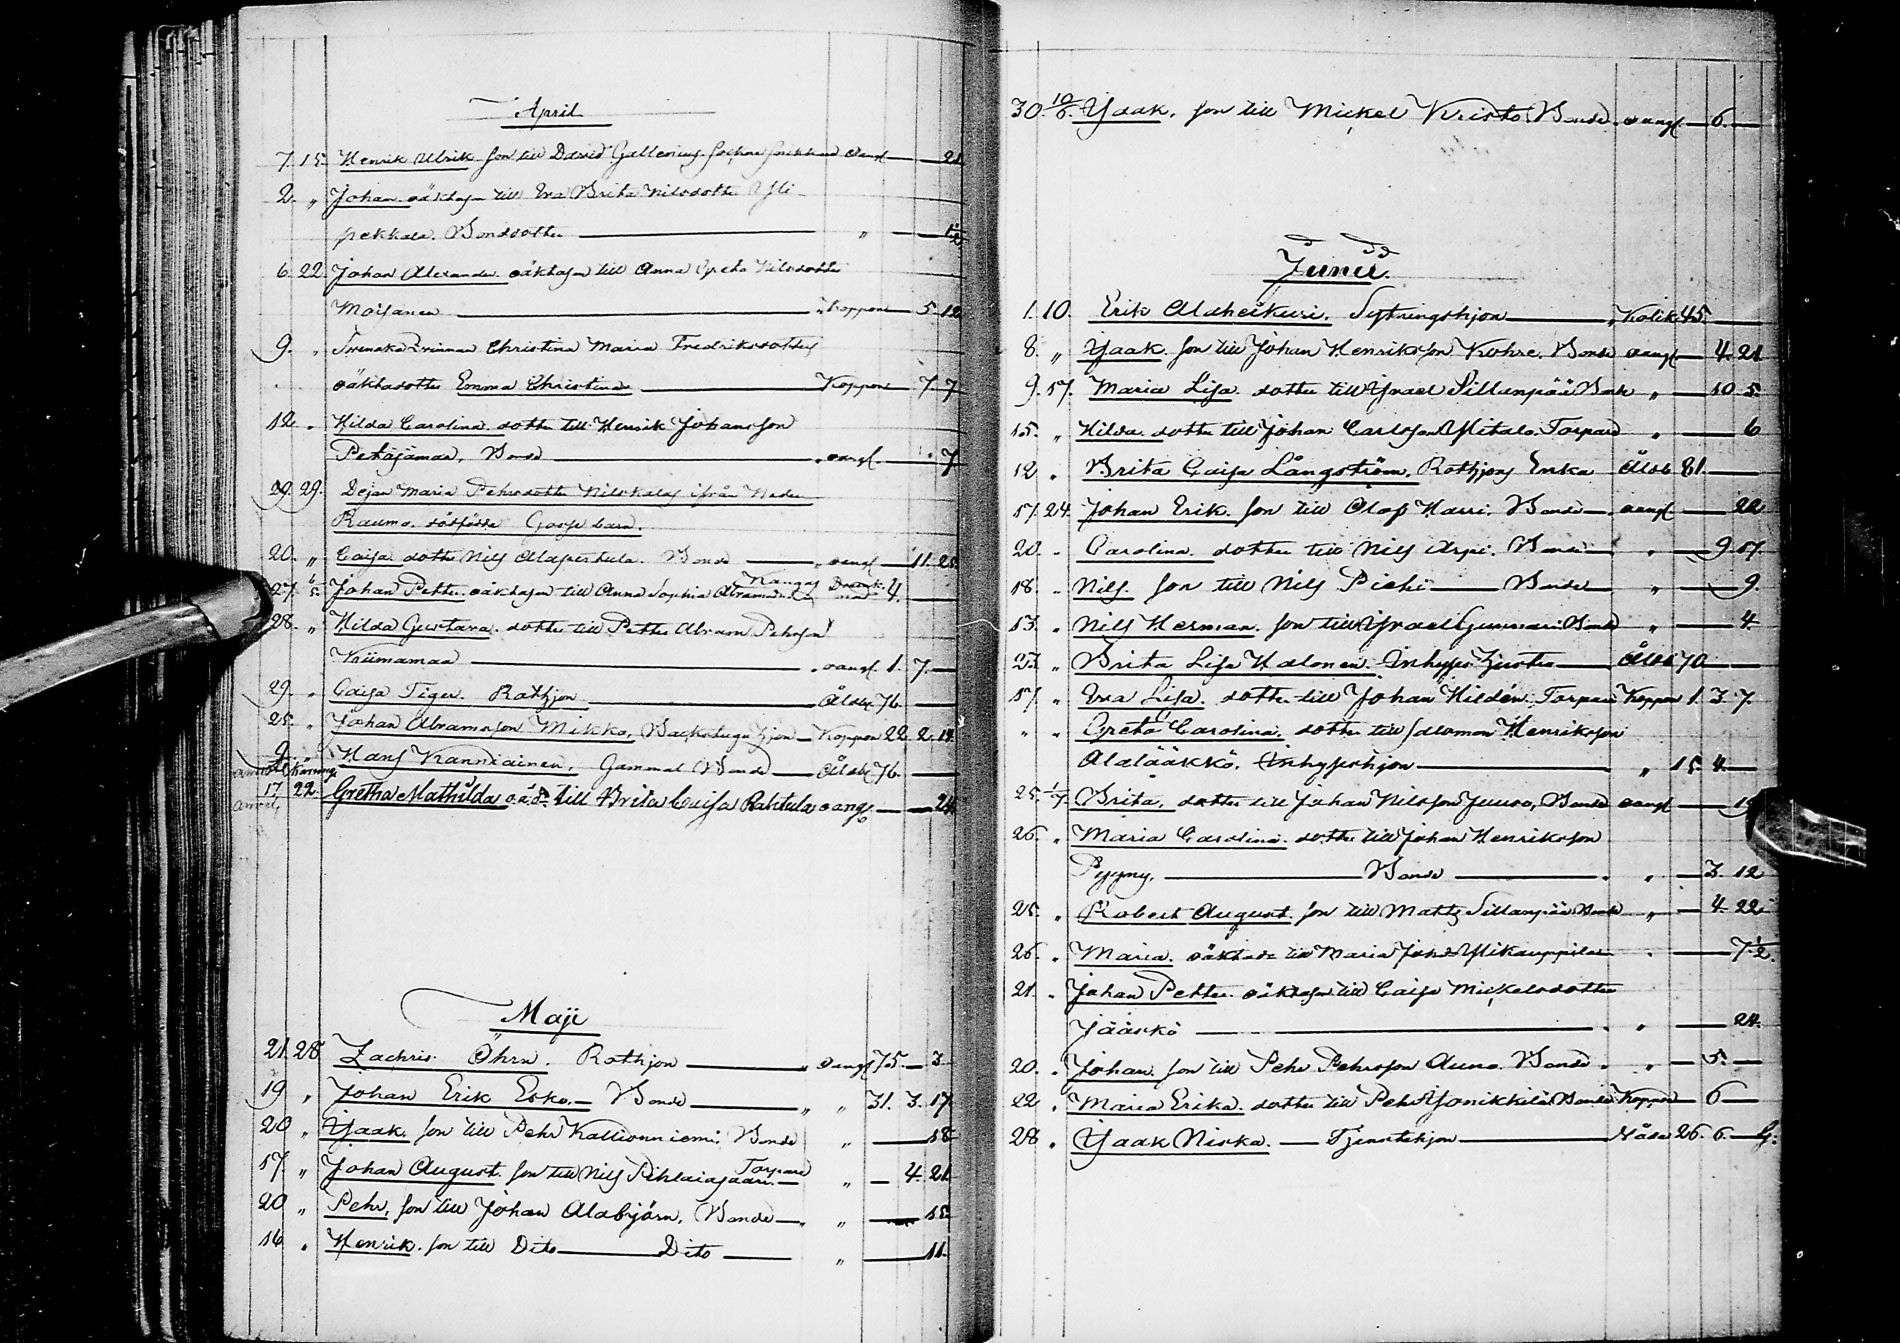 April
7. 15. Henrik Ulrik son till David Gallenius Sockne snikkare oangf — 21
2. „ Johan oäktason till Eva Brita Nilsdotter Yli-
pekkala. Bondedotter — „ — 1/2
6. 22. Johan Alexander oäktason till Anna Greta Nilsdotter
Moisanen — Koppor — 5. 12
9. „ Svenska Qvinnan Christina Maria Fredriksdotters
oäktadotter Emma Christina — Koppor — 7. 7
12 „ Hilda Carolina dotter till Henrik Johansson
Petäjämaa, Bonde — oangf — 7
29. 29. Dejan Maria Pehrsdotter Nilokalas ifrån Neder
Raumo. dödfödde Gosse barn.
20. „ Caisa dotter Nils Alapertula. Bonde — oangf — 11. 25
27. 6/5. Johan Petter oäktason till Anna Sophia Abramsd. Kangas — 4. —
28. „ Hilda Gustava. dotter till Petter Abram Pehrson
Kiimamaa — oangf. 1. 7. —
29. „ Caisa Tiger. Rothjon — Åldr 76. —
25. „ Johan Abramsson Mikko, Backstugu hjon — Koppor 22. 2. 14.
9. Hans Kanniainen. Gammal Bonde — Åldr 76. —
17. 22. Gretha Mathilda o.ä.D. till Brita Caisa Rahtula oangf. — 24
Maji
21. 28. Zachris Öhrn. Rothjon — oangf 75. — 3
19 „ Johan Erik Esko. — Bonde — „ „ 31. 3. 17
20 „ Yaak. son till Pehr Kallionniemi, Bonde „ — 18
17. „ Johan August. son till Nils Pihlaiasaari. Torpare — „ — 4. 21
20 „ Pehr, son till Johan Alabjörn. Bonde — „ — 15
16 „ Henrik. son till Dito — Dito — „ — 11.
30. 10/6. Yaak. son till Mickel Kristo Bonde. oangf — 6. —
Junii.
1. 10. Erik Alaheikuri. Sytningshjon — Kolik 45. —
8. „ Yaak. son till Johan Henriksson Kohre. Bonde oangf — 4. 21
9. 17. Maria Lisa. dotter till Ysrael Sillanpää Bonde „ — 10. 5.
15. „ Hilda. dotter till Johan Carlsson Ylitalo. Torpare „ — 6
12. „ Brita Caisa Långström. Rothjons Enka Åldr 81. —
17. 24. Johan Erik. son till Olof Harri. Bonde — oangf — 22
20. „ Carolina dotter till Nils Arpi. Bonde „ — 9. 17.
18. „ Nils. son till Nils Piehi — Bonde „ — 9.
13. „ Nils Herman. son till Ysrael Gunnari Bonde „ — 4.
23. „ Brita Lisa Halonen. Inhyses Hjustru — Åldr 70 —
17. „ Eva Lisa. dotter till Johan Hildén. Torpare Koppor 1. 3. 7.
„ „ Greta Carolina. dotter till Salomon Henriksson
Alalääkkö. Inhyseshjon — „ 15. 4. —
25. 1/7. Brita, dotter till Johan Nilsson Juuso, Bonde oangf —
26. „ Maria Carolina. dotter till Johan Henriksson
Pyyny. — Bonde — „ — 3. 12
25. „ Robert August. son till Matts Sillanpää Bonde „ — 4. 22
26. „ Maria. oäktadr till Maria Ylikauppila „ — 7 1/2.
21. „ Johan Petter. oäktason till Caisa Mickelsdotter
Jääskö — „ — 24.
20. „ Johan. son till Pehr Pehrsson Auno. Bonde. „ — 5. —
22. „ Maria Erika. dotter till Pehr Yonikkilä Bonde Koppor — 6 —
28. „ Yaak Niska. — Tjenstehjon — Nåda 26. 6. —